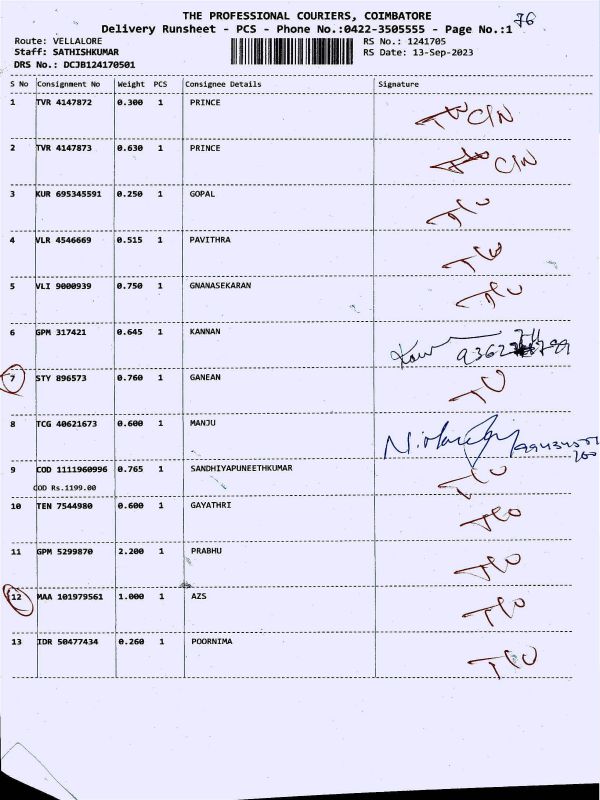 THE PROFESSIONAL COURIERS, COIMBATORE 76
Delivery Runsheet - PCS - Phone No.:0422-3505555 - Page No.:1
Route: VELLALORE RS No.: 1241705
Staff: SATHISHKUMAR RS Date: 13-Sep-2023
DRS No.: DCJB124170501
S No Consignment No Weight PCS Consignee Details Signature
1 TVR 4147872 0.300 1 PRINCE C/N
2 TVR 4147873 0.630 1 PRINCE C/N
3 KUR 695345591 0.250 1 GOPAL
4 VLR 4546669 0.515 1 PAVITHRA
5 VLI 9000939 0.750 1 GNANASEKARAN
6 GPM 317421 0.645 1 KANNAN
7 STY 896573 0.760 1 GANEAN
8 TCG 40621673 0.600 1 MANJU
9 COD 1111960996 0.765 1 SANDHIYAPUNEETHKUMAR
COD Rs.1199.00
10 TEN 7544980 0.600 1 GAYATHRI
11 GPM 5299870 2.200 1 PRABHU
12 MAA 101979561 1.000 1 AZS
13 IDR 50477434 0.260 1 POORNIMA